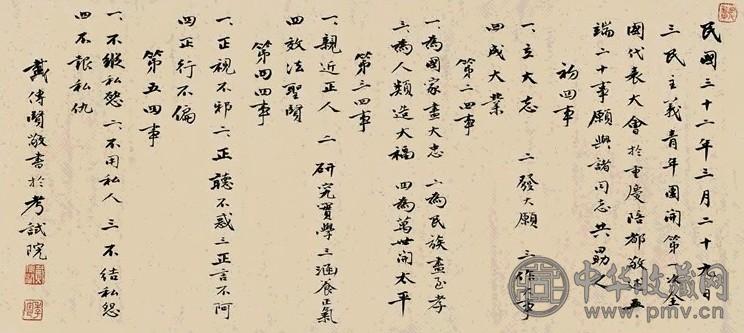 民國三十二年三月二十九日
三民主義青年團開第一次全
國代表大會於重慶陪都敬述五
端二十事願與諸同志共勗之
初四事
一立大志 二發大願 三作大事
四成大業
第二四事
一為國家盡大忠 二為民族盡至孝
三為人類造大福 四為萬世開太平
第三四事
一親近正人 二研究實學 三涵養正氣
四效法聖賢
第四四事
一正視不邪 二正聽不惑 三正言不阿
四正行不偏
第五四事
一不縱私慾 二不用私人 三不結私怨
四不報私仇
戴傳賢敬書於考試院
中华收藏网
www.pmv.cn